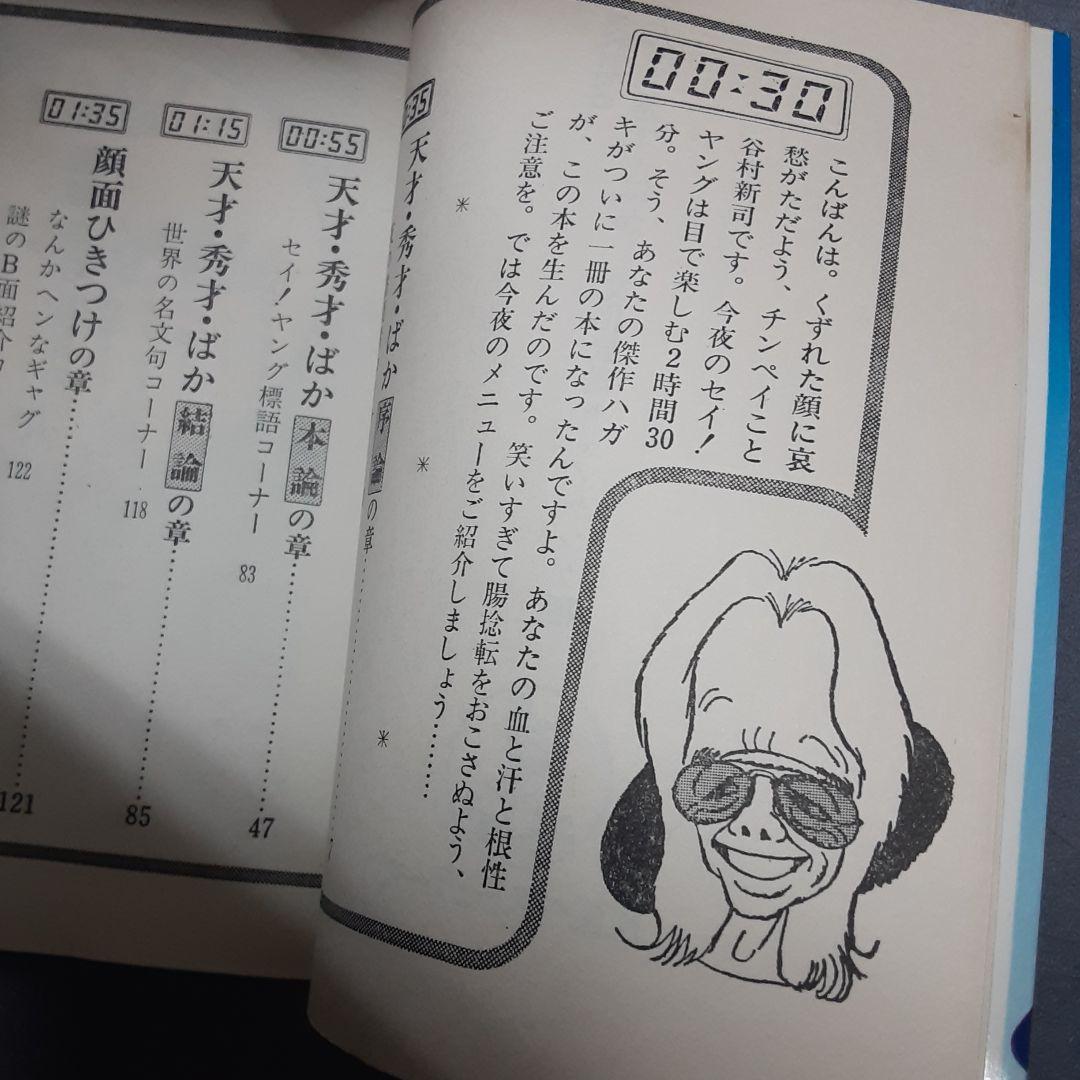 00:30
こんばんは。くずれた顔に哀
愁がただよう、チンペイこと
谷村新司です。今夜のセイ！
ヤングは目で楽しむ2時間30
分。そう、あなたの傑作ハガ
キがついに一冊の本になったんですよ。あなたの血と汗と根性
が、この本を生んだのです。笑いすぎて腸捻転をおこさぬよう、
ご注意を。では今夜のメニューをご紹介しましょう……
＊ ＊ ＊
:35
天才・秀才・ばか序論の章
00:55
天才・秀才・ばか本論の章……47
セイ！ヤング標語コーナー 83
01:15
天才・秀才・ばか結論の章……85
世界の名文句コーナー 118
01:35
顔面ひきつけの章……121
なんかヘンなギャグ 122
謎のB面紹介